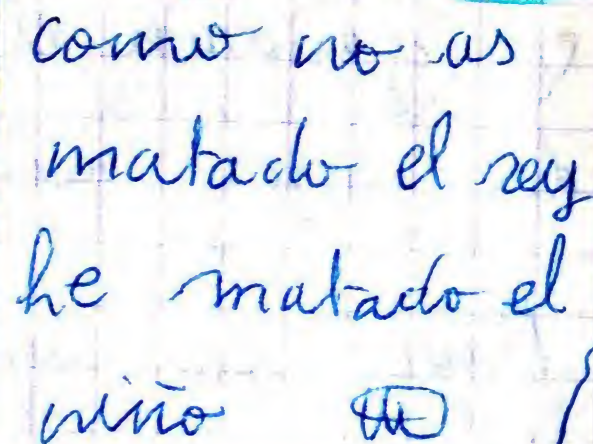 como no as
matado el rey
he matado el
niño